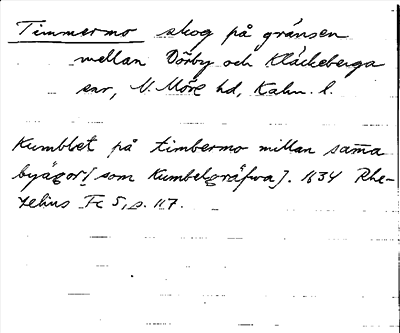 Timmermo skog på gränsen
mellan Dörby och Kläckeberga
snr, N. Möre hd, Kalm. l.
Kumblet på timbermo millan sam̅a
byägor [som Kumbelgräfwa]. 1634 Rhe-
zelius Fc 5, s. 117.